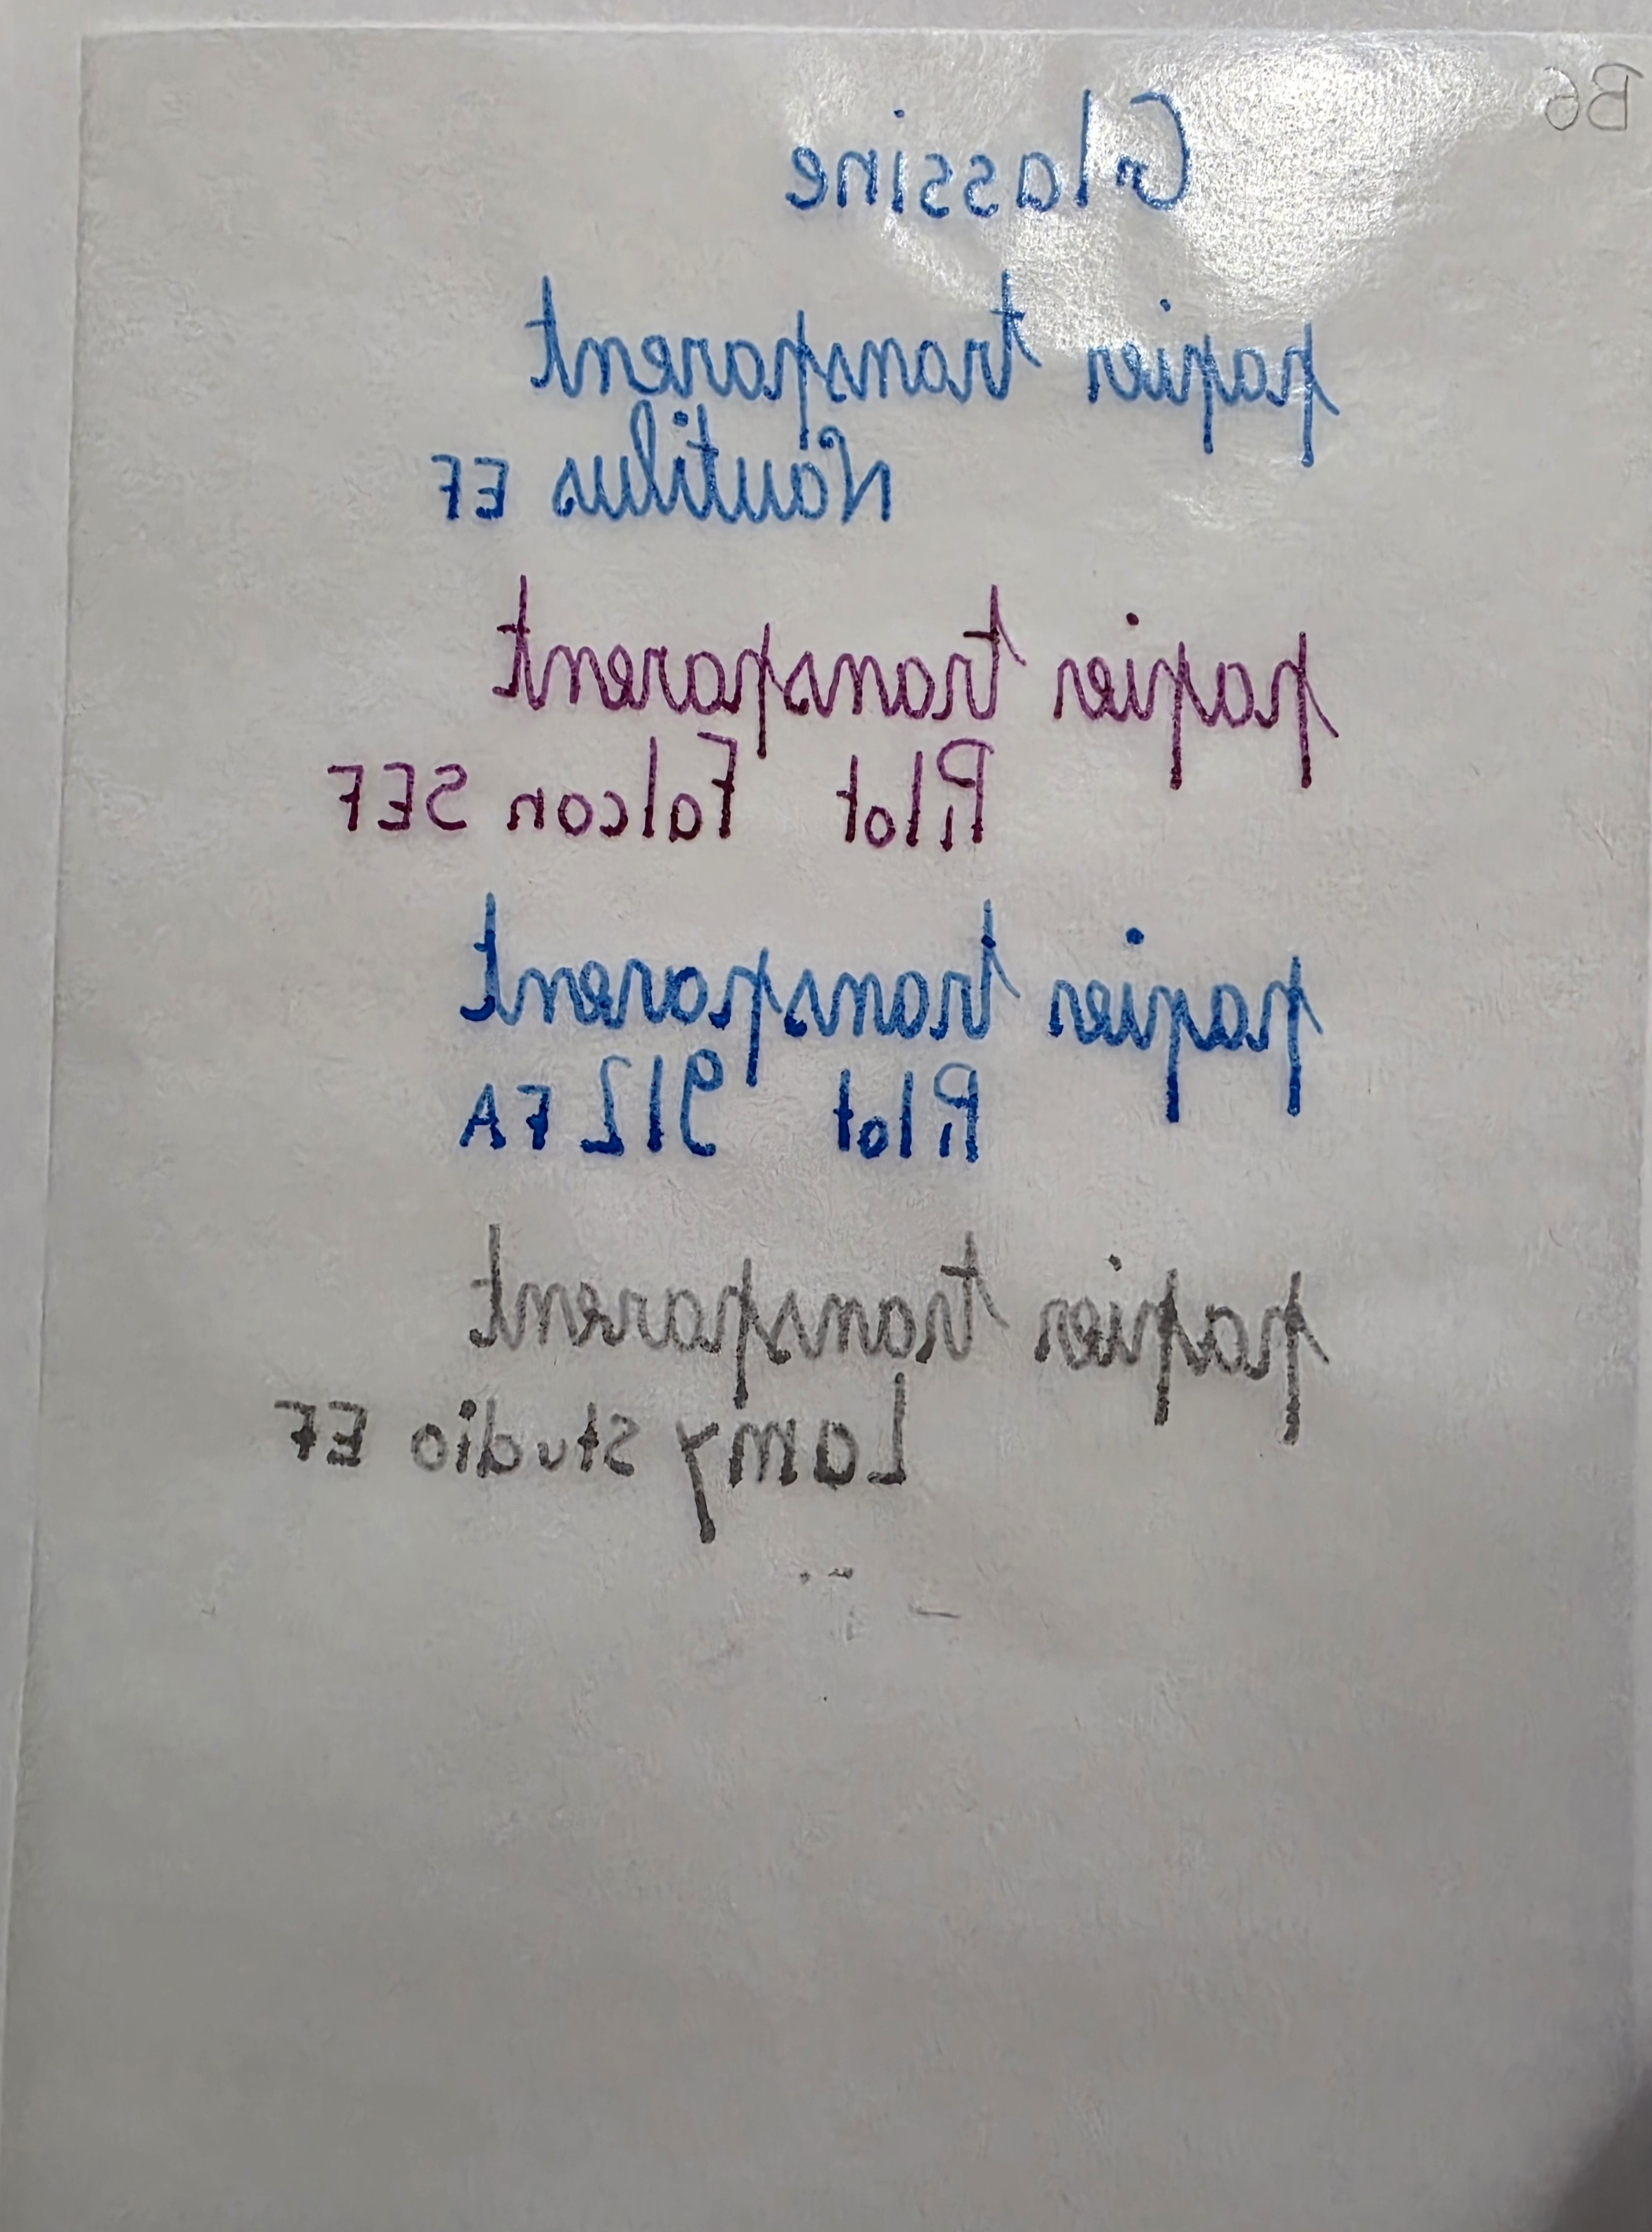 B6
Glassine
papier transparent
Nautilus EF
papier transparent
Pilot Falcon SEF
papier transparent
Pilot 912 FA
papier transparent
Lamy Studio EF